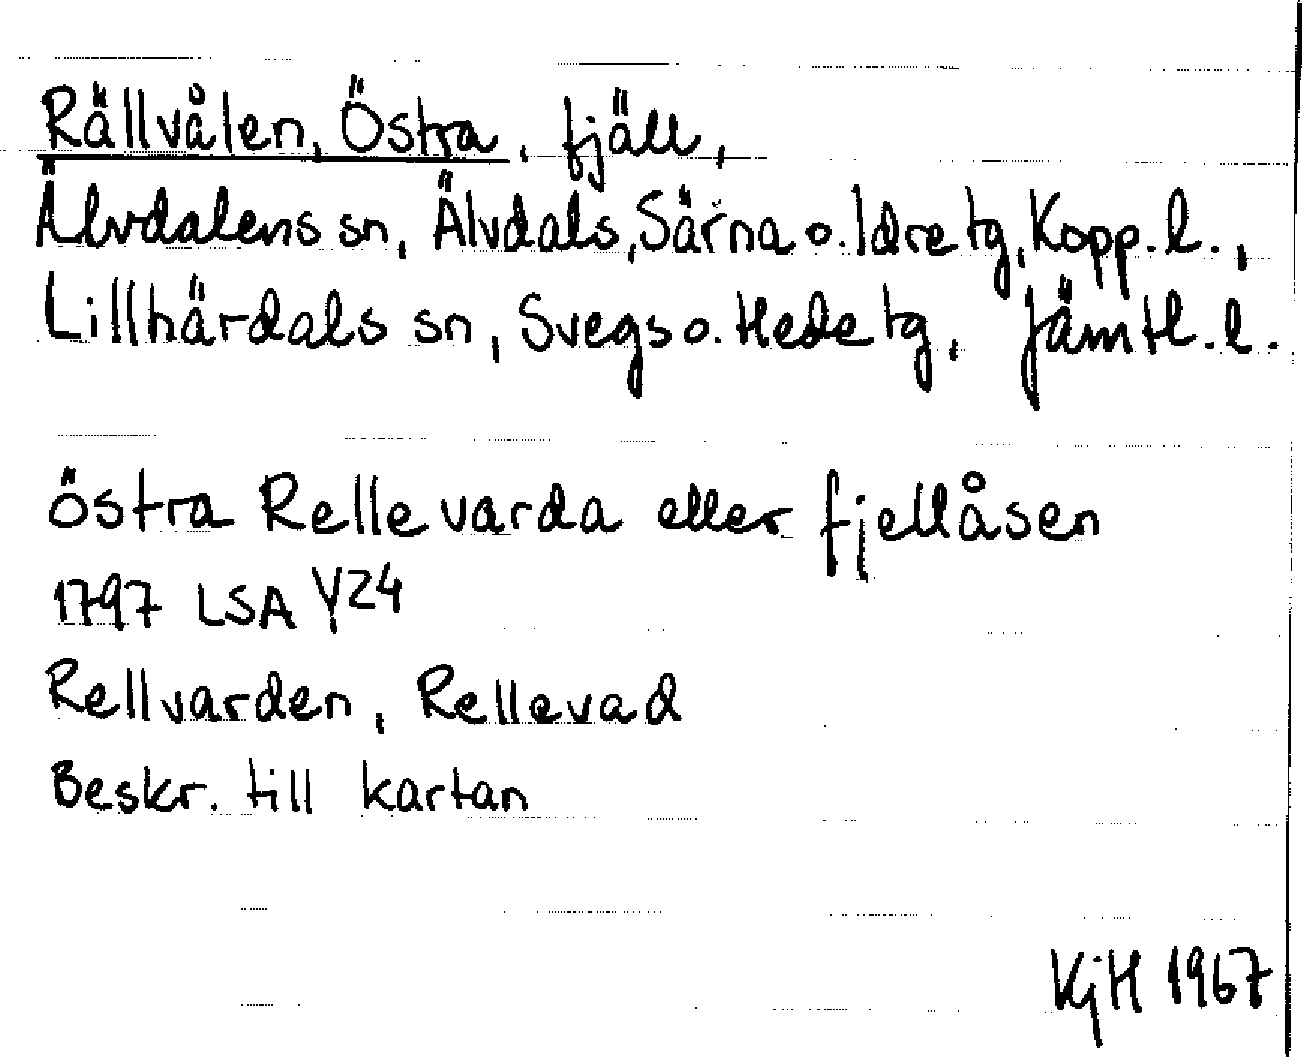 Rällvålen, Östra, fjäll,
Älvdalens sn, Älvdals, Särna o. Idre tg, Kopp. l.,
Lillhärdals sn, Svegs o. Hede tg, Jämtl. l.
Östra Relle varda eller fjellåsen
1797 LSA Y24
Rellvarden, Rellevad
Beskr. till kartan
KjH 1967